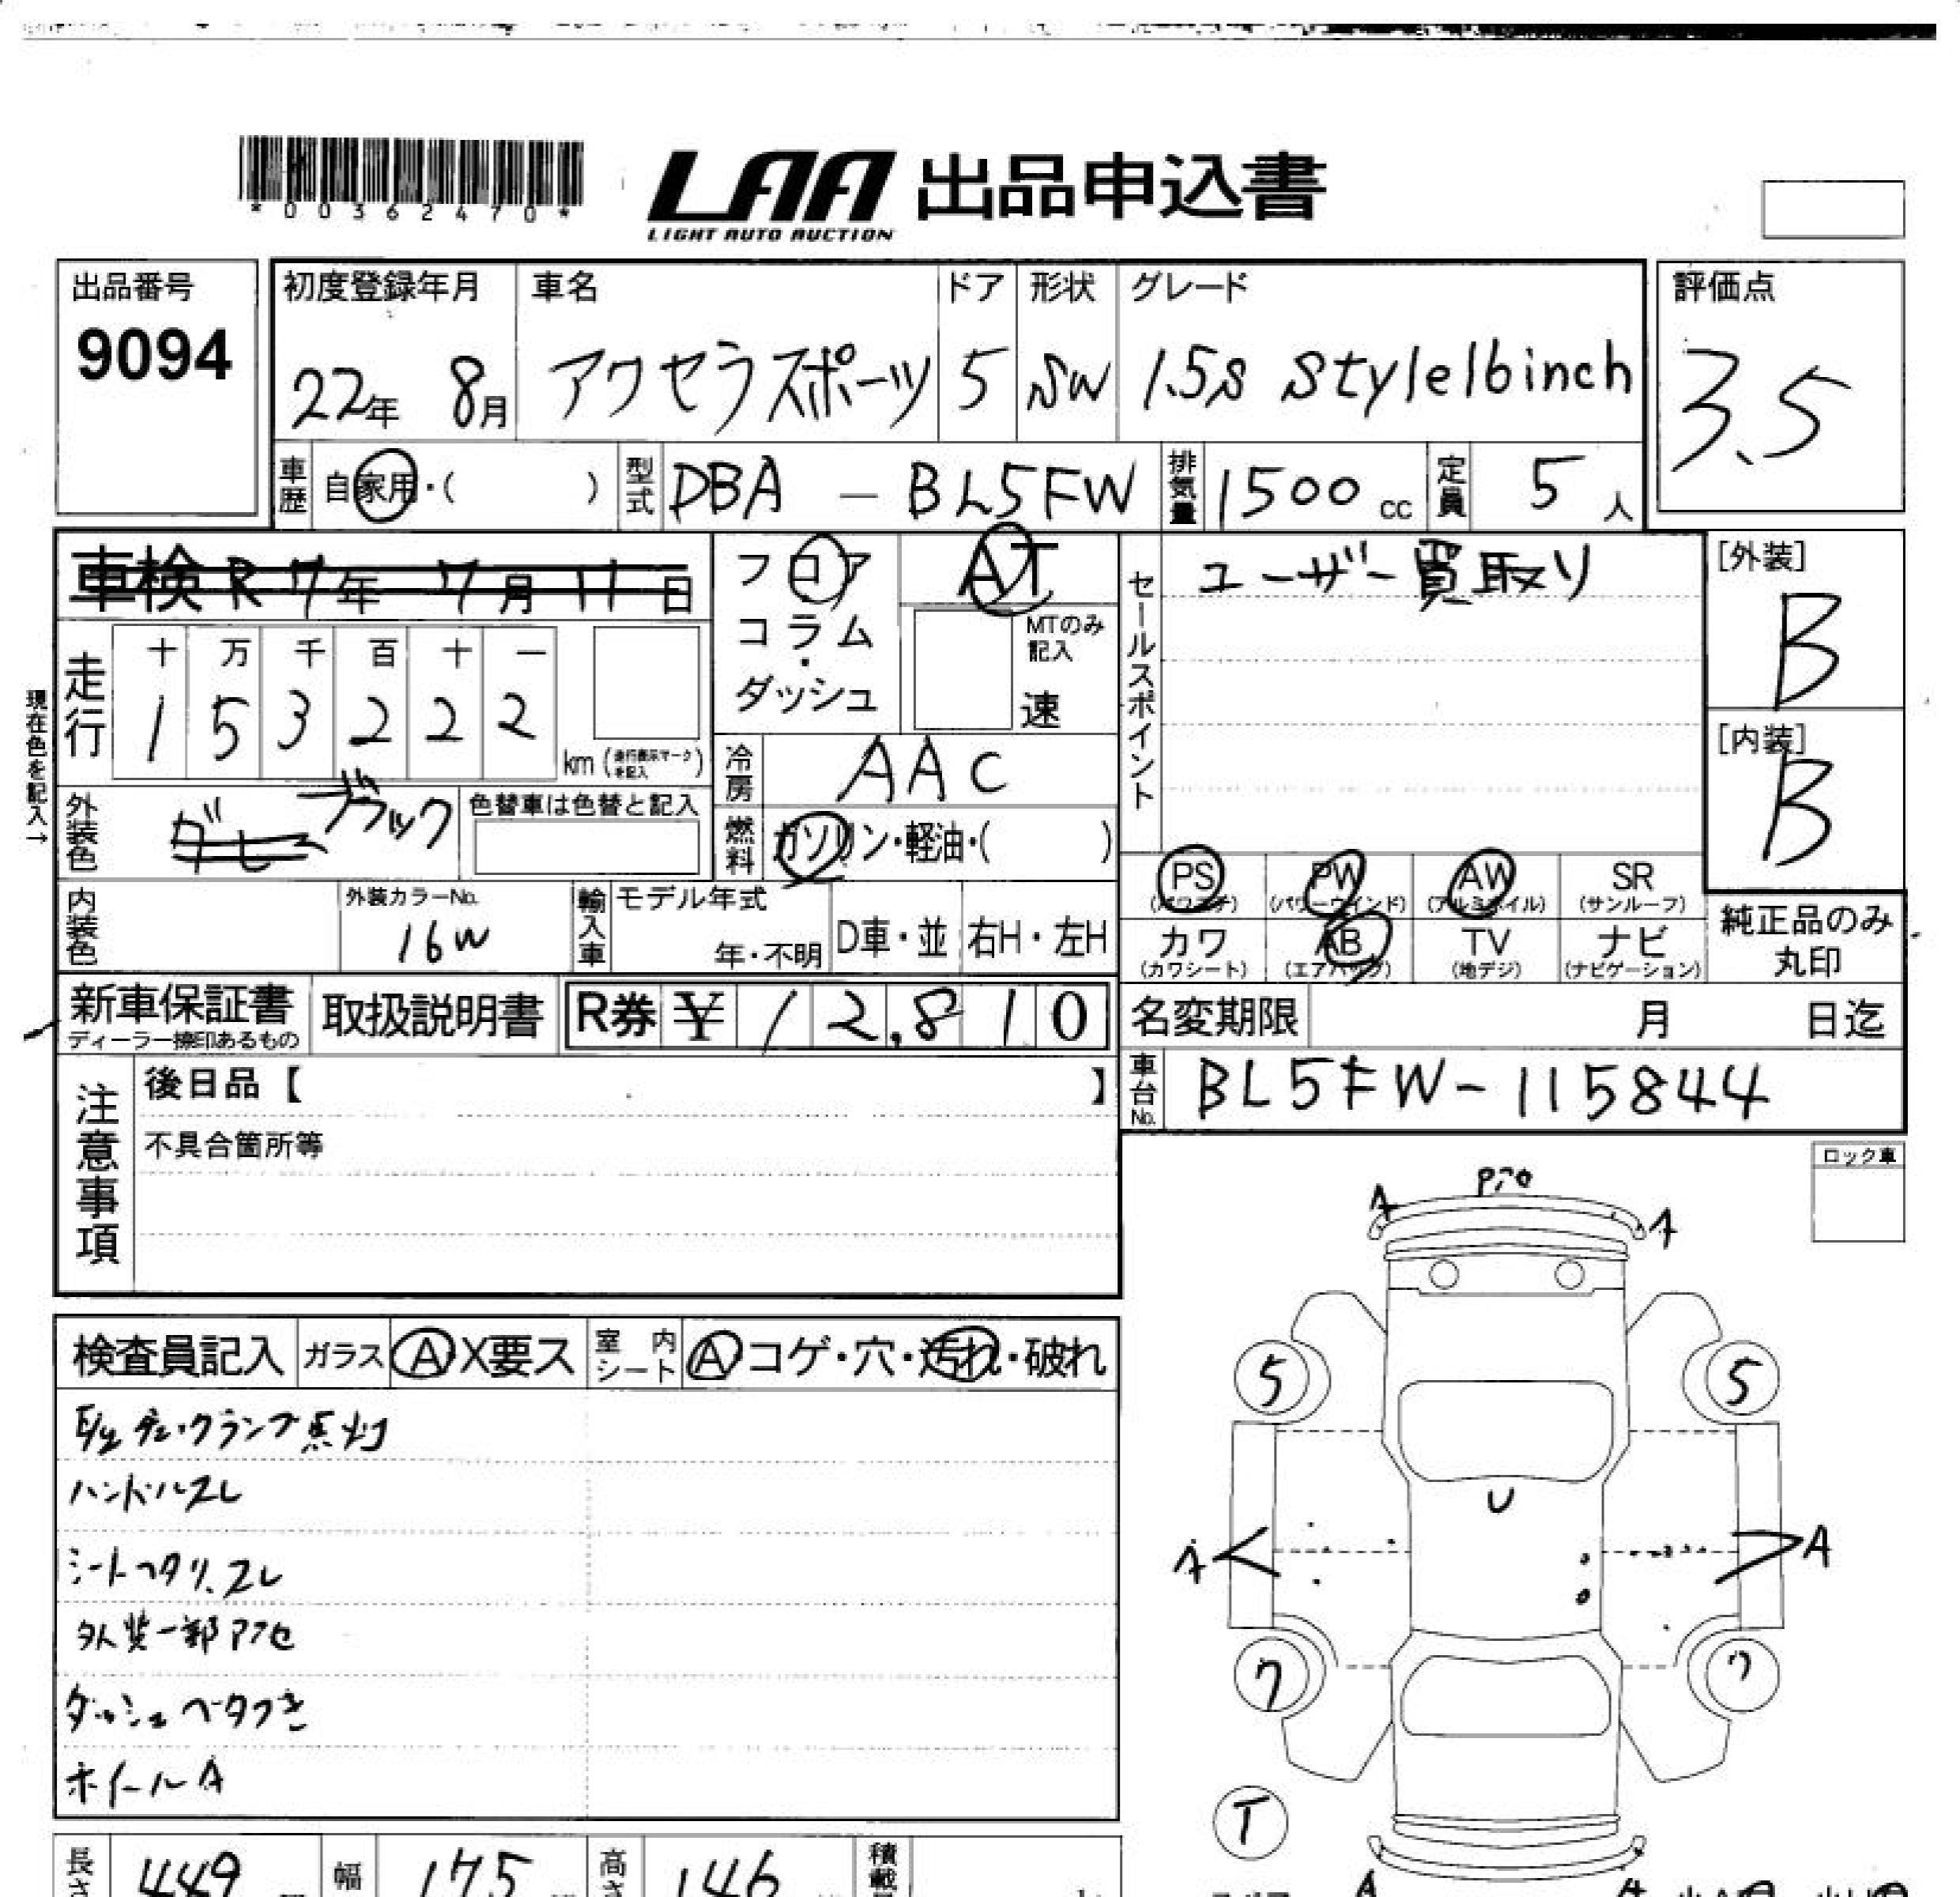 *00362470*
LAA 出品申込書
LIGHT AUTO AUCTION
出品番号
9094
初度登録年月 車名 ドア 形状 グレード
22年 8月 アクセラスポーツ 5 SW 1.5s Style16inch
評価点
3.5
車歴 自家用・( ) 型式 DBA - BL5FW 排気量 1500cc 定員 5人
車検 R7年 7月 11日
フロア
コラム
・
ダッシュ
AT
MTのみ
記入
速
セールスポイント
ユーザー買取り
[外装]
B
[内装]
B
現在色を記入→
走行
十 万 千 百 十 一
1 5 3 2 2 2
km (走行表示マークを記入)
冷房 AAC
外装色 グレー ブラック
色替車は色替と記入
燃料 ガソリン・軽油・( )
PS PW AW SR
(パワステ) (パワーウインド) (アルミホイル) (サンルーフ)
カワ AB TV ナビ
(カワシート) (エアバッグ) (地デジ) (ナビゲーション)
純正品のみ
丸印
内装色
外装カラーNo.
16W
輸入車
モデル年式
年・不明
D車・並 右H・左H
新車保証書
ディーラー捺印あるもの
取扱説明書
R券 ¥ 12,810
名変期限 月 日迄
車台No. BL5FW-115844
注意事項
後日品【 】
不具合箇所等
ロック車
検査員記入 ガラス A X要ス 室内シート A コゲ・穴・汚れ・破れ
チェックランプ点灯
ハンドルスレ
シートヘタリ、スレ
外装一部アセ
ダッシュベタつき
ホイールA
A A
5 5
U
A A
7 7
T
A A
長さ 449 幅 175 高さ 146 積載